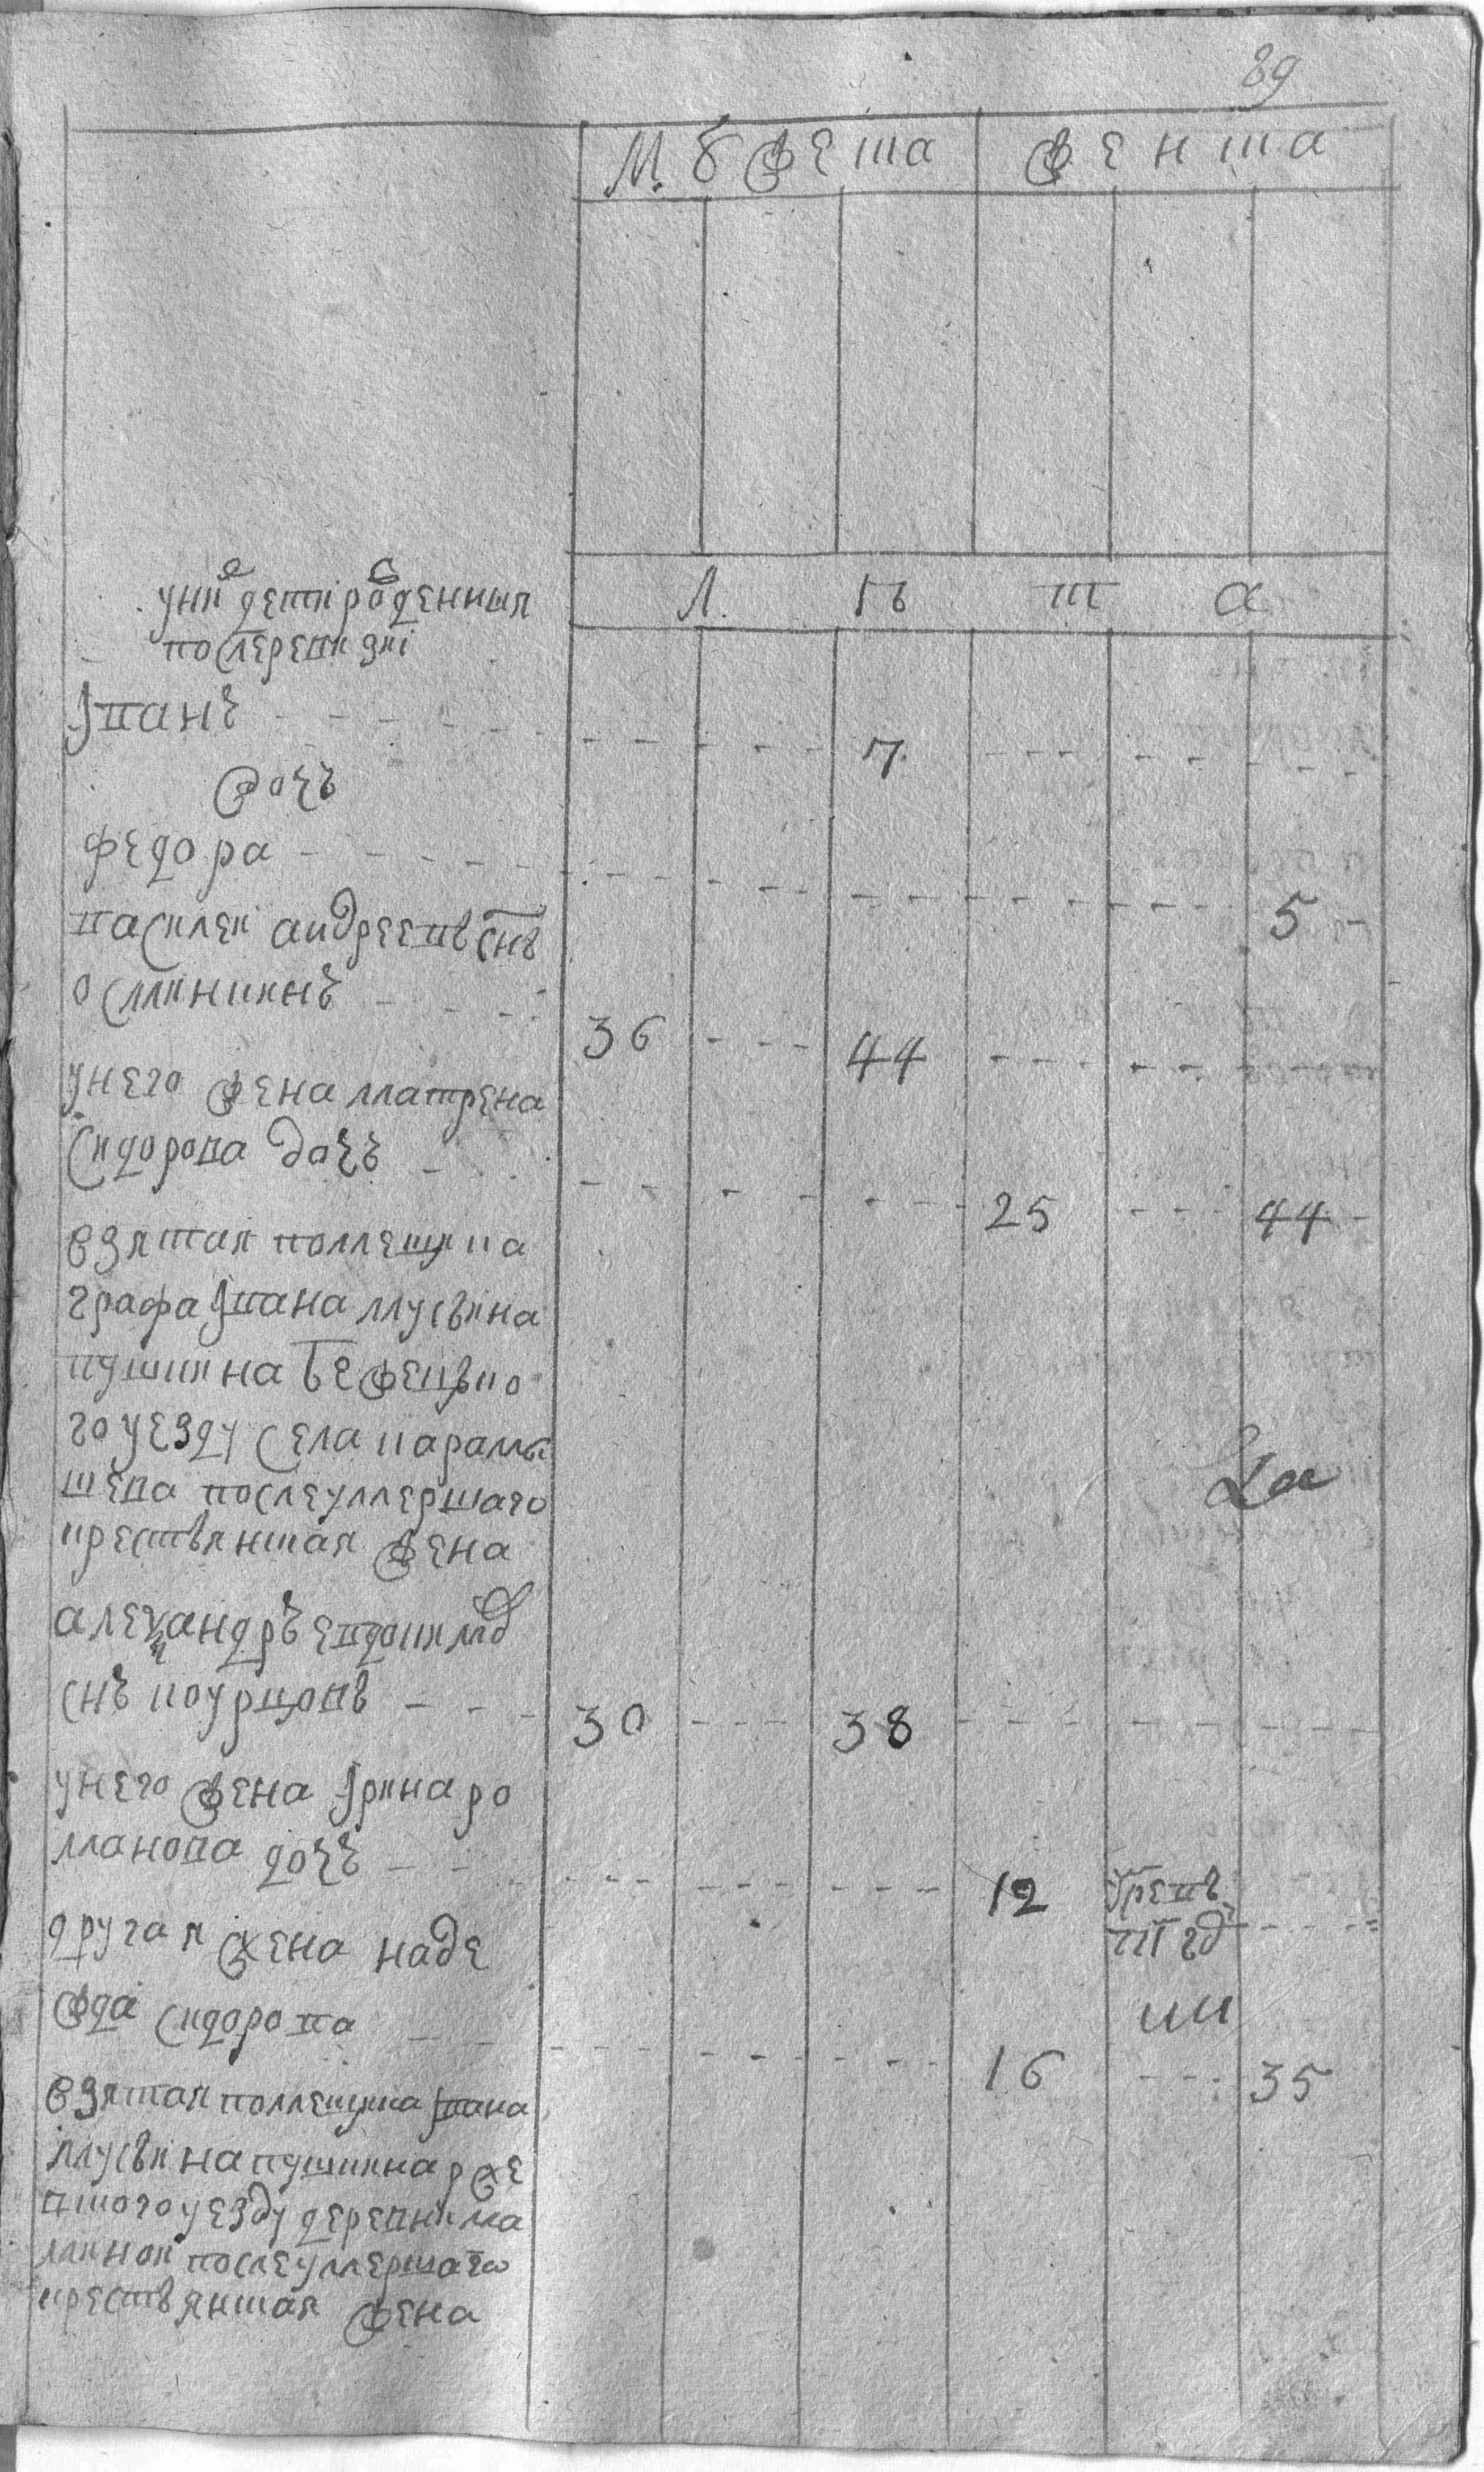 89
Мужеска Женска
Л Ѣ Т А
у них дети рожденныя
после ревизиі
Іванъ 7
дочь
Федора 5
Василей андреевъ снъ
Осминкинъ 36 44
у него жена матрена
Сидорова дочь 25 44
взятая помещика
графа Івана мусина
пушкина бежецко
го уезду села карамы
шева после умершаго
крестьянина жена
александръ евдокимов
снъ коурцовъ 30 38
у него жена Ірина ро
манова дочь 12
другая жена наде
жда сидорова 16 35
взятая помещика Івана
мусина пушкина рже
вского уезду деревни ма
миной после умершаго
крестьянина жена